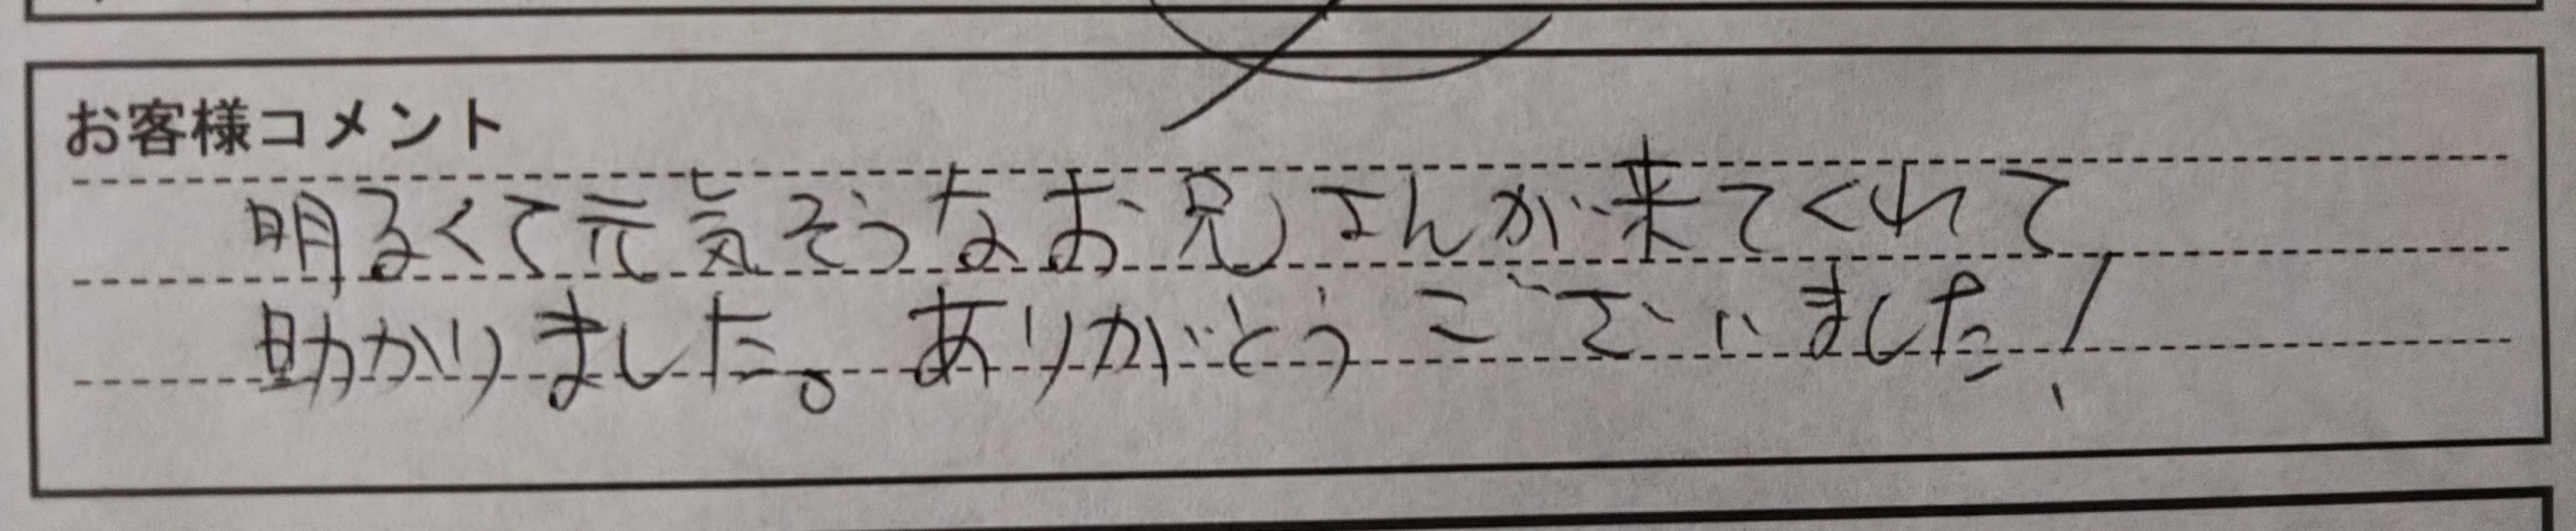 お客様コメント
明るくて元気そうなお兄さんが来てくれて
助かりました。ありがとうございました!